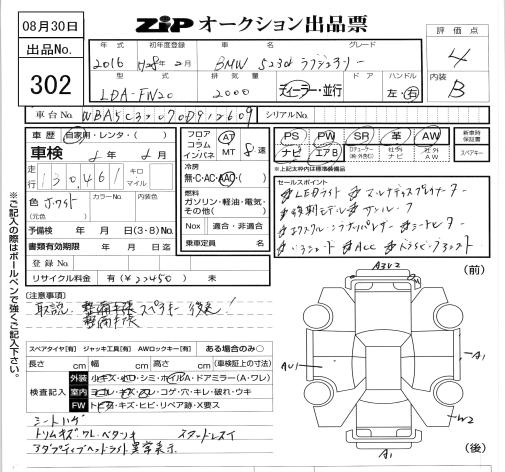 08月30日
ZiP オークション出品票
出品No.
302
評価点
4
内装
B
年式 初年度登録 車名 グレード
2016 H28年2月 BMW 523d ラグジュアリー
型式 排気量 ドア ハンドル
LDA-FW20 2000 ディーラー・並行 左・右
車台No. WBA5C32070D912609 シリアルNo.
車歴 自家用・レンタ・( )
車検 年 月
走行 130,461 キロ マイル
色 ホワイト カラーNo. 内装色
(元色)
予備検 年 月 日(3・8)No.
書類有効期限 年 月 日迄
登録No
リサイクル料金 有(¥22450)無
フロア コラム インパネ AT MT 8速
冷房
無・C・AC・AAC・( )
燃料
ガソリン・軽油・電気・その他( )
Nox 適合・非適合
乗車定員 名
PS PW SR 革 AW
ナビ エアB 社外ナビ 社外AW
新車時保証書
スペアキー
※上記太枠内は標準装備品
セールスポイント
#LEDライト
#後期モデル
#ACC
※ご記入の際はボールペンで強くご記入下さい。
(注意事項)
取説 整備手帳 スペアキー 後送!
整備手帳
スペアタイヤ[有] ジャッキ工具[有] AWロックキー[有] ある場合のみ○
長さ cm 幅 cm 高さ cm (車検証上の寸法)
検査記入
外装 小キズ・小凹・シミ・ホイルA・ドアミラー(A・ワレ)
室内 ヨゴレ・キズ・スレ・コゲ・穴・キレ・破れ・ウキ
FW トビ石・キズ・ヒビ・リペア跡・X要ス
シートハゲ
トリムキズ・ワレ・ベタツキ スタッドレスイ
アダプティブヘッドライト異常表示
(前)
A3U2
AU1
A1
W2
A1
(後)